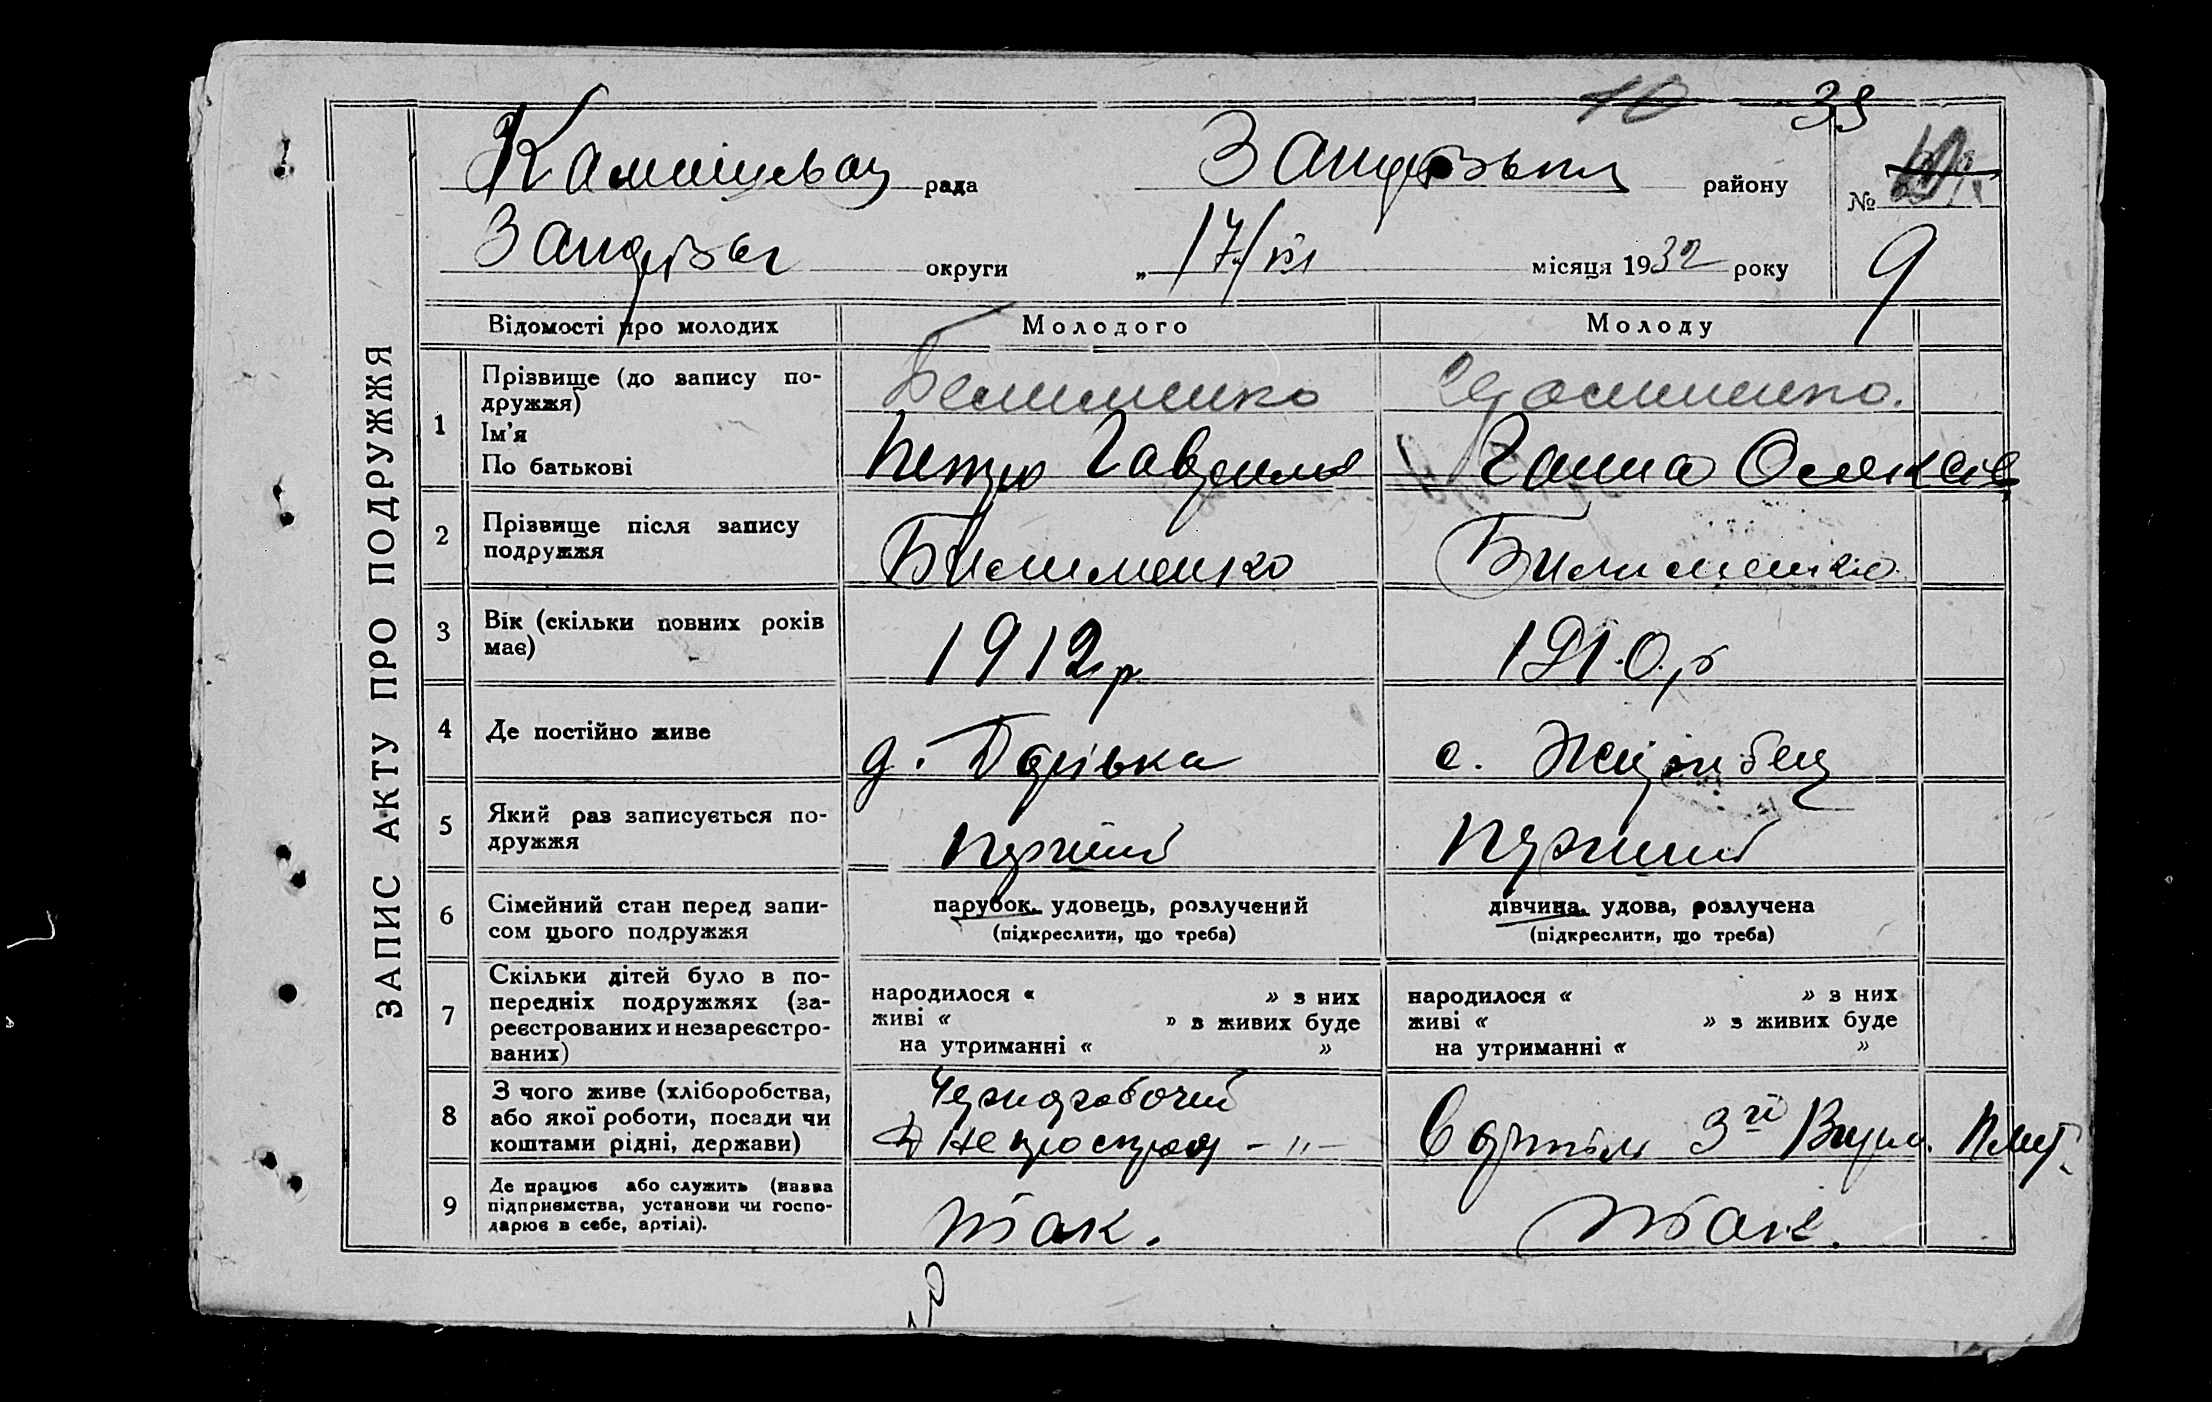 ЗАПИС АКТУ ПРО ПОДРУЖЖЯ
10 39
рада району
№
9
округи „ 17/VII місяця 1932 року
Відомості про молодих Молодого Молоду
1 Прізвище (до запису по-
дружжя)
Ім'я
По батькові
Петро Гаврилов Ганна Олексіє
2 Прізвище після запису
подружжя
Билименко Билименко
3 Вік (скільки повних років
має)
1912 р 1910. р
4 Де постійно живе
с.
5 Який раз записується по-
дружжя
перший перший
6 Сімейний стан перед запи-
сом цього подружжя
парубок, удовець, розлучений
(підкреслити, що треба)
дівчина, удова, розлучена
(підкреслити, що треба)
7 Скільки дітей було в по-
передніх подружжях (за-
реєстрованих и незареєстро-
ваних)
народилося « » з них
живі « » в живих буде
на утриманні « »
народилося « » з них
живі « » з живих буде
на утриманні « »
8 З чого живе (хліборобства,
або якої роботи, посади чи
коштами рідні, держави)
Чернорабочий
В артіли 3й
9 Де працює або служить (назва
підприємства, установи чи госпо-
дарює в себе, артілі).
так. так.